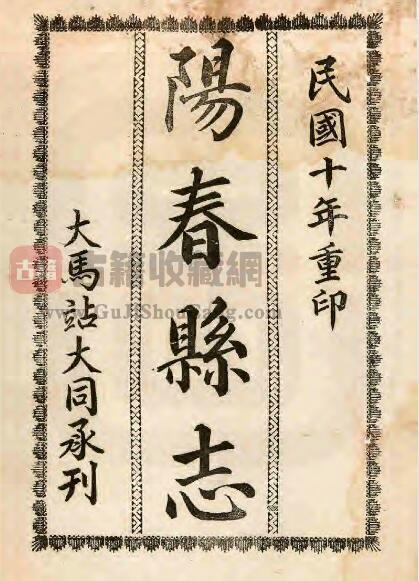 民國十年重印
陽春縣志
大馬站大同承刊
古籍
古籍收藏網
www.GuJiShouCang.com